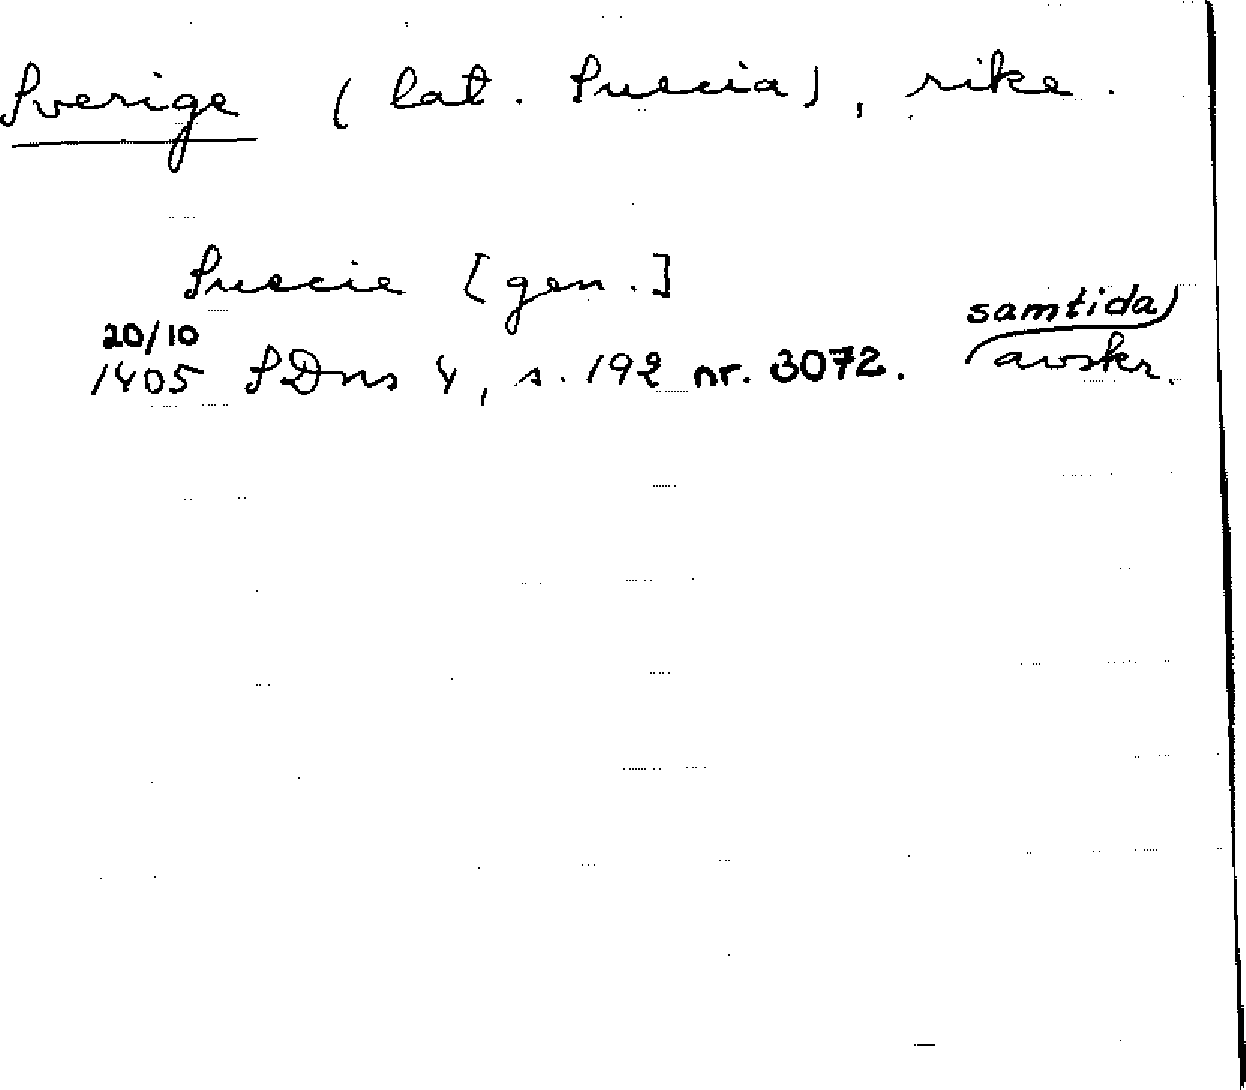 Sverige (lat. Suecia), rike.
Suecie [gen.]
20/10 samtida
1405 SDns 4, s. 192 nr. 3072. avskr.